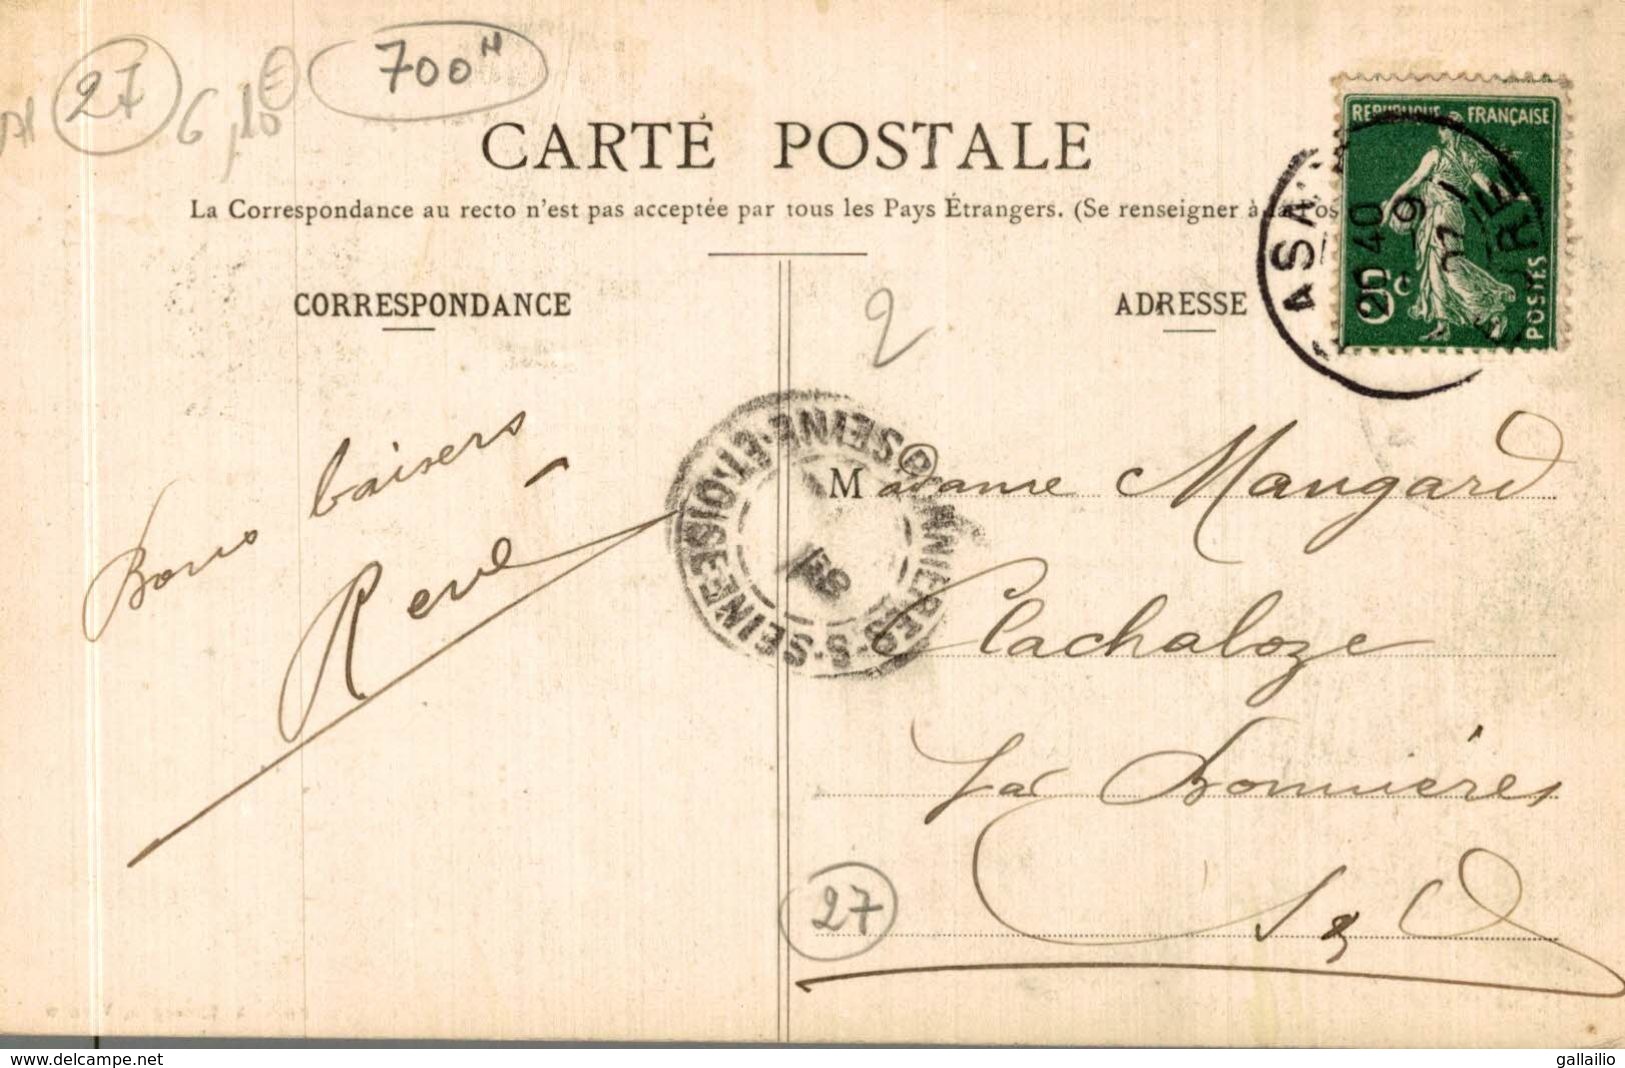 27
6,10€
700
CARTE POSTALE
La Correspondance au recto n'est pas acceptée par tous les Pays Étrangers. (Se renseigner à la Pos
CORRESPONDANCE
ADRESSE
2
REPUBLIQUE FRANÇAISE
5c
POSTES
20 40
9 - 1
EURE
Bons baisers
René
SEINE-ET-OISE
BONNIERES-S-SEINE
Madame Maugard
Clachaloze
par Bonnières
S & O
27
delcampe.net
gallailio